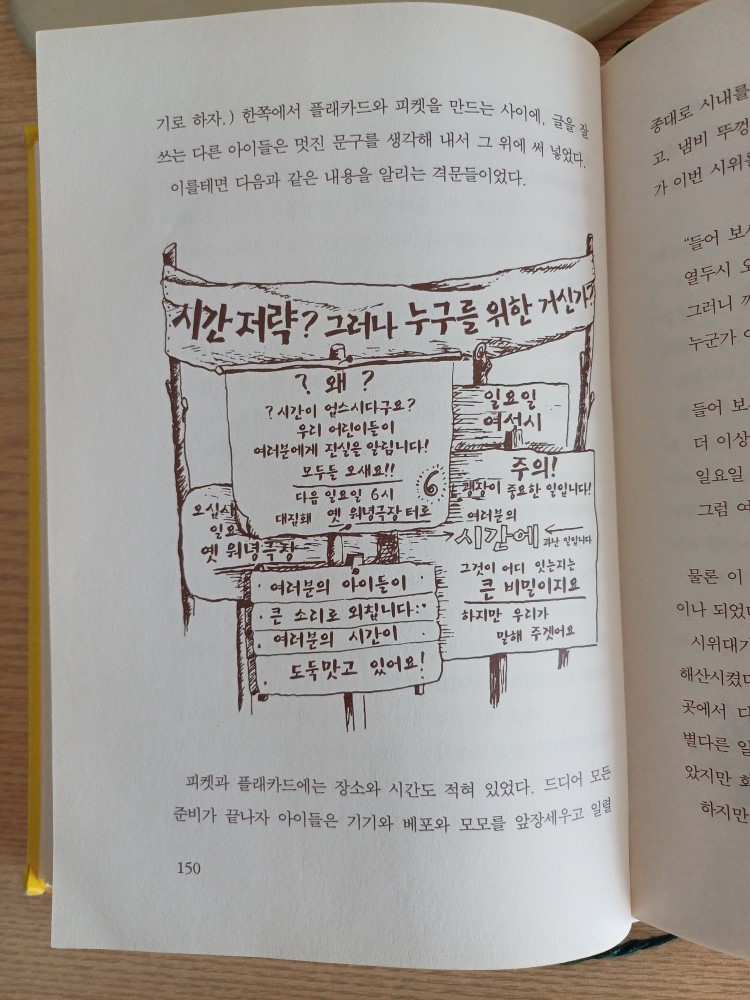 기로 하자.) 한쪽에서 플래카드와 피켓을 만드는 사이에, 글을 잘
쓰는 다른 아이들은 멋진 문구를 생각해 내서 그 위에 써 넣었다.
이를테면 다음과 같은 내용을 알리는 격문들이었다.
시간 저략? 그러나 누구를 위한 거신가?
? 왜 ?
? 시간이 업스시다구요?
우리 어린이들이
여러분에게 진실을 알림니다!
모두들 오새요!!
다음 일요일 6시
대집홰 옛 워녕극장 터로
6
일요일
여섯시
주의!
굉잘이 중요한 일입니다!
여러분의
시간에
과난 일입니다
그것이 어디 잇는지는
큰 비밀이지요
하지만 우리가
말해 주겟어요
오십새
일요
옛 워녕극장
여러분의 아이들이
큰 소리로 외칩니다:
여러분의 시간이
도둑맞고 있어요!
피켓과 플래카드에는 장소와 시간도 적혀 있었다. 드디어 모든
준비가 끝나자 아이들은 기기와 베포와 모모를 앞장세우고 일렬
150
종대로 시내를
고, 냄비 뚜껑
가 이번 시위를
"들어 보
열두시
그러니
누군가
들어 보
더 이상
일요일
그럼
물론 이
이나 되었다
시위대가
해산시켰다
곳에서
별다른 일
왔지만
하지만